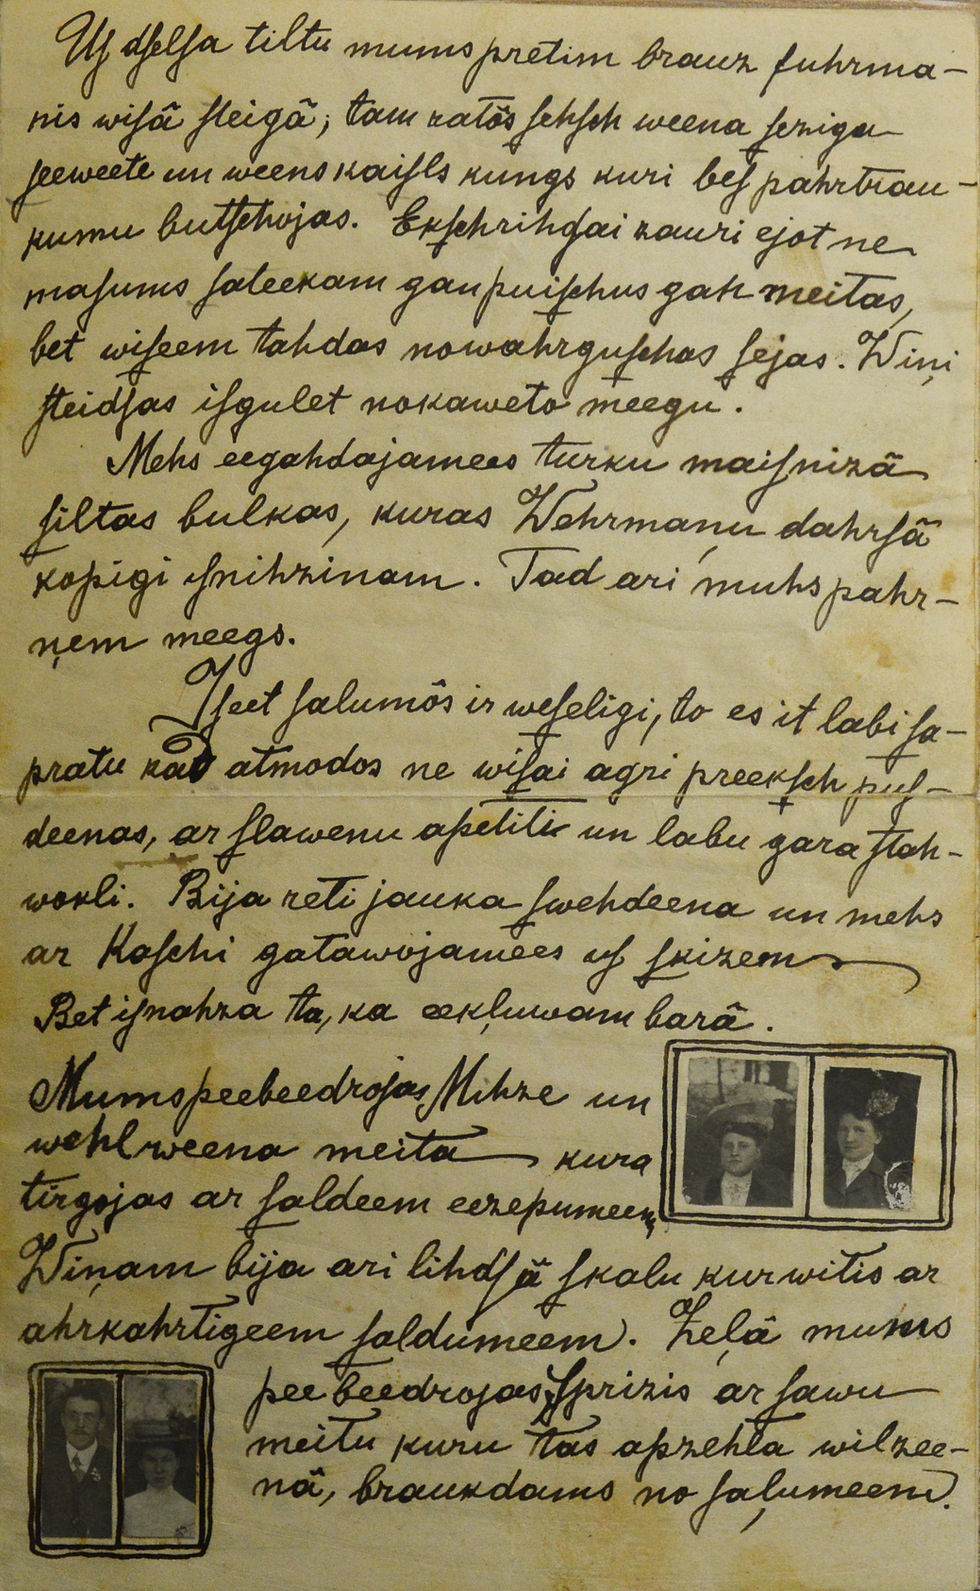 Uſ dſelſa tiltu mums pretim brauz fuhrma-
nis wiſâ ſteigâ, tam ratôs ſehſch weena ſeziga
ſeeweete un weens kaiſls kungs kuri beſ pahrtrau-
kumu butſchojas. Ekſchrihgai zauri ejot ne
maſums ſateekam gan puiſchus gan meitas,
bet wiſeem tahdas nowahrguſchas ſejas. Wiņi
ſteidſas iſgulet nokaweto meegu.
Mehs eegahdajamees turku maiſnizâ
ſiltas bulkas, kuras Wehrmaņu dahrſâ
kopigi ſnihzinam. Tad ari muhs pahr-
ņem meegs.
Iſeet ſalumôs ir weſeligi, to es it labi ſa-
pratu kad atmodos ne wiſai agri preekſch puſ-
deenas, ar ſlawenu apetiti un labu gara ſtah-
wokli. Bija reti jauka ſwehdeena un mehs
ar Kaſchi gatawojamees uſ ſkizem
Bet iſnahza ta, ka eekļuwam barâ.
Mums peebeedrojas Mihze un
wehl weena meita kura
tirgojas ar ſaldeem eezepumeem,
Wiņam bija ari lihdſâ ſkalu kurwitis ar
ahrkahrtigeem ſaldumeem. Zeļâ mums
peebeedrojas Sprizis ar ſawu
meitu kuru tas apzehla wilzee-
nâ, braukdams no ſaļumeem.